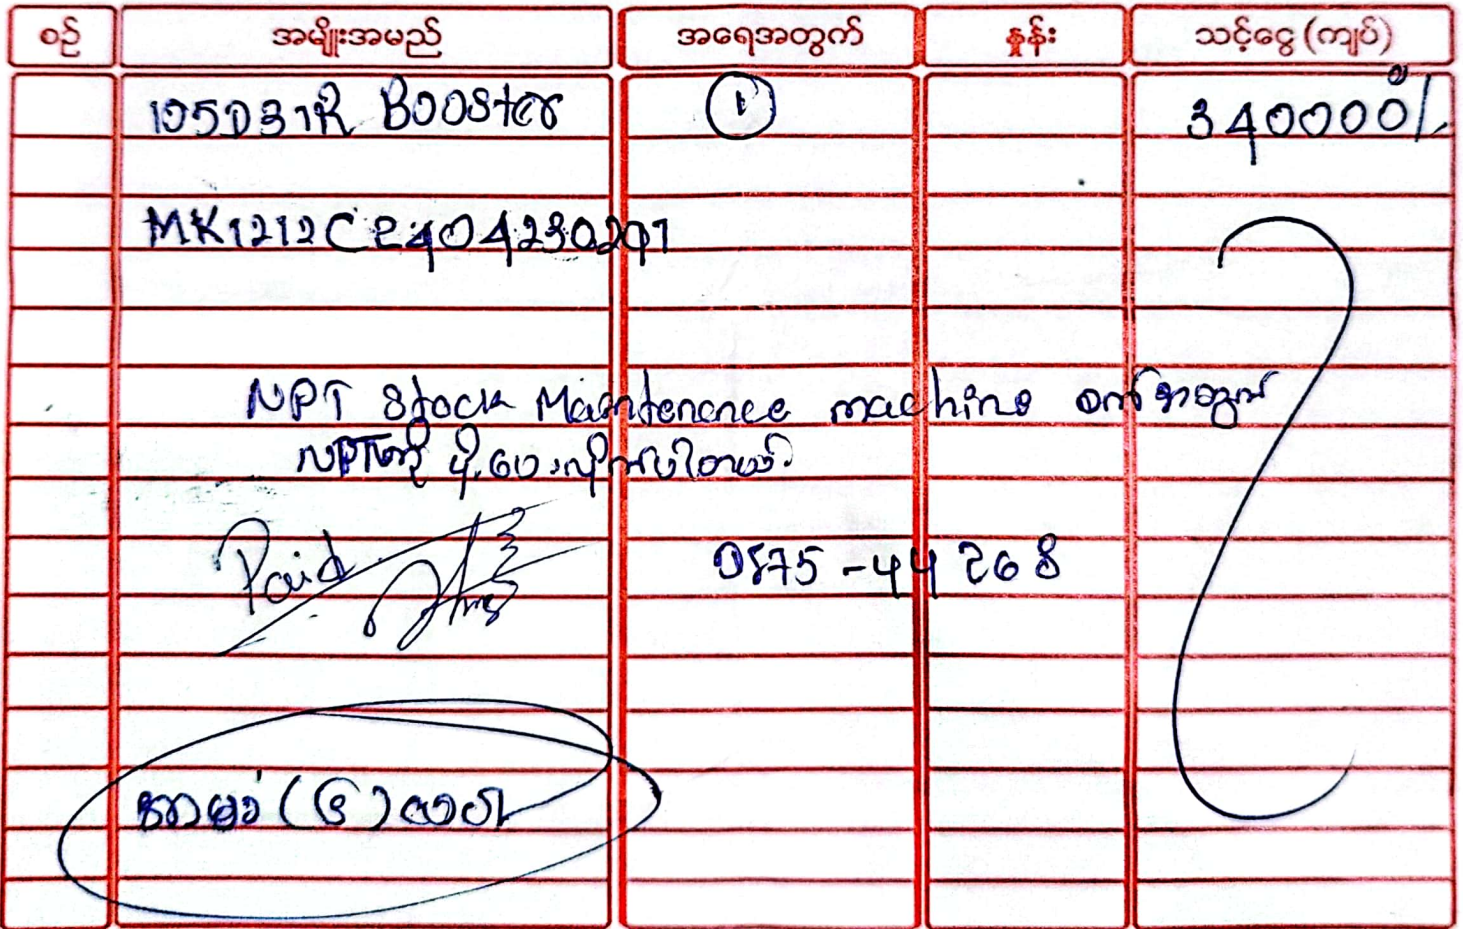 စဉ် အမျိုးအမည် အရေအတွက် နှုန်း သင့်ငွေ (ကျပ်)
105D31R Booster ① 340000/-
MK1212CE404230291
NPT Stock Maintenence machine စက်အတွက်
NPTကို ပို့ပေးလိုက်ပါတယ်
Paid 0575-44268
အာမခံ (၆) လပါ